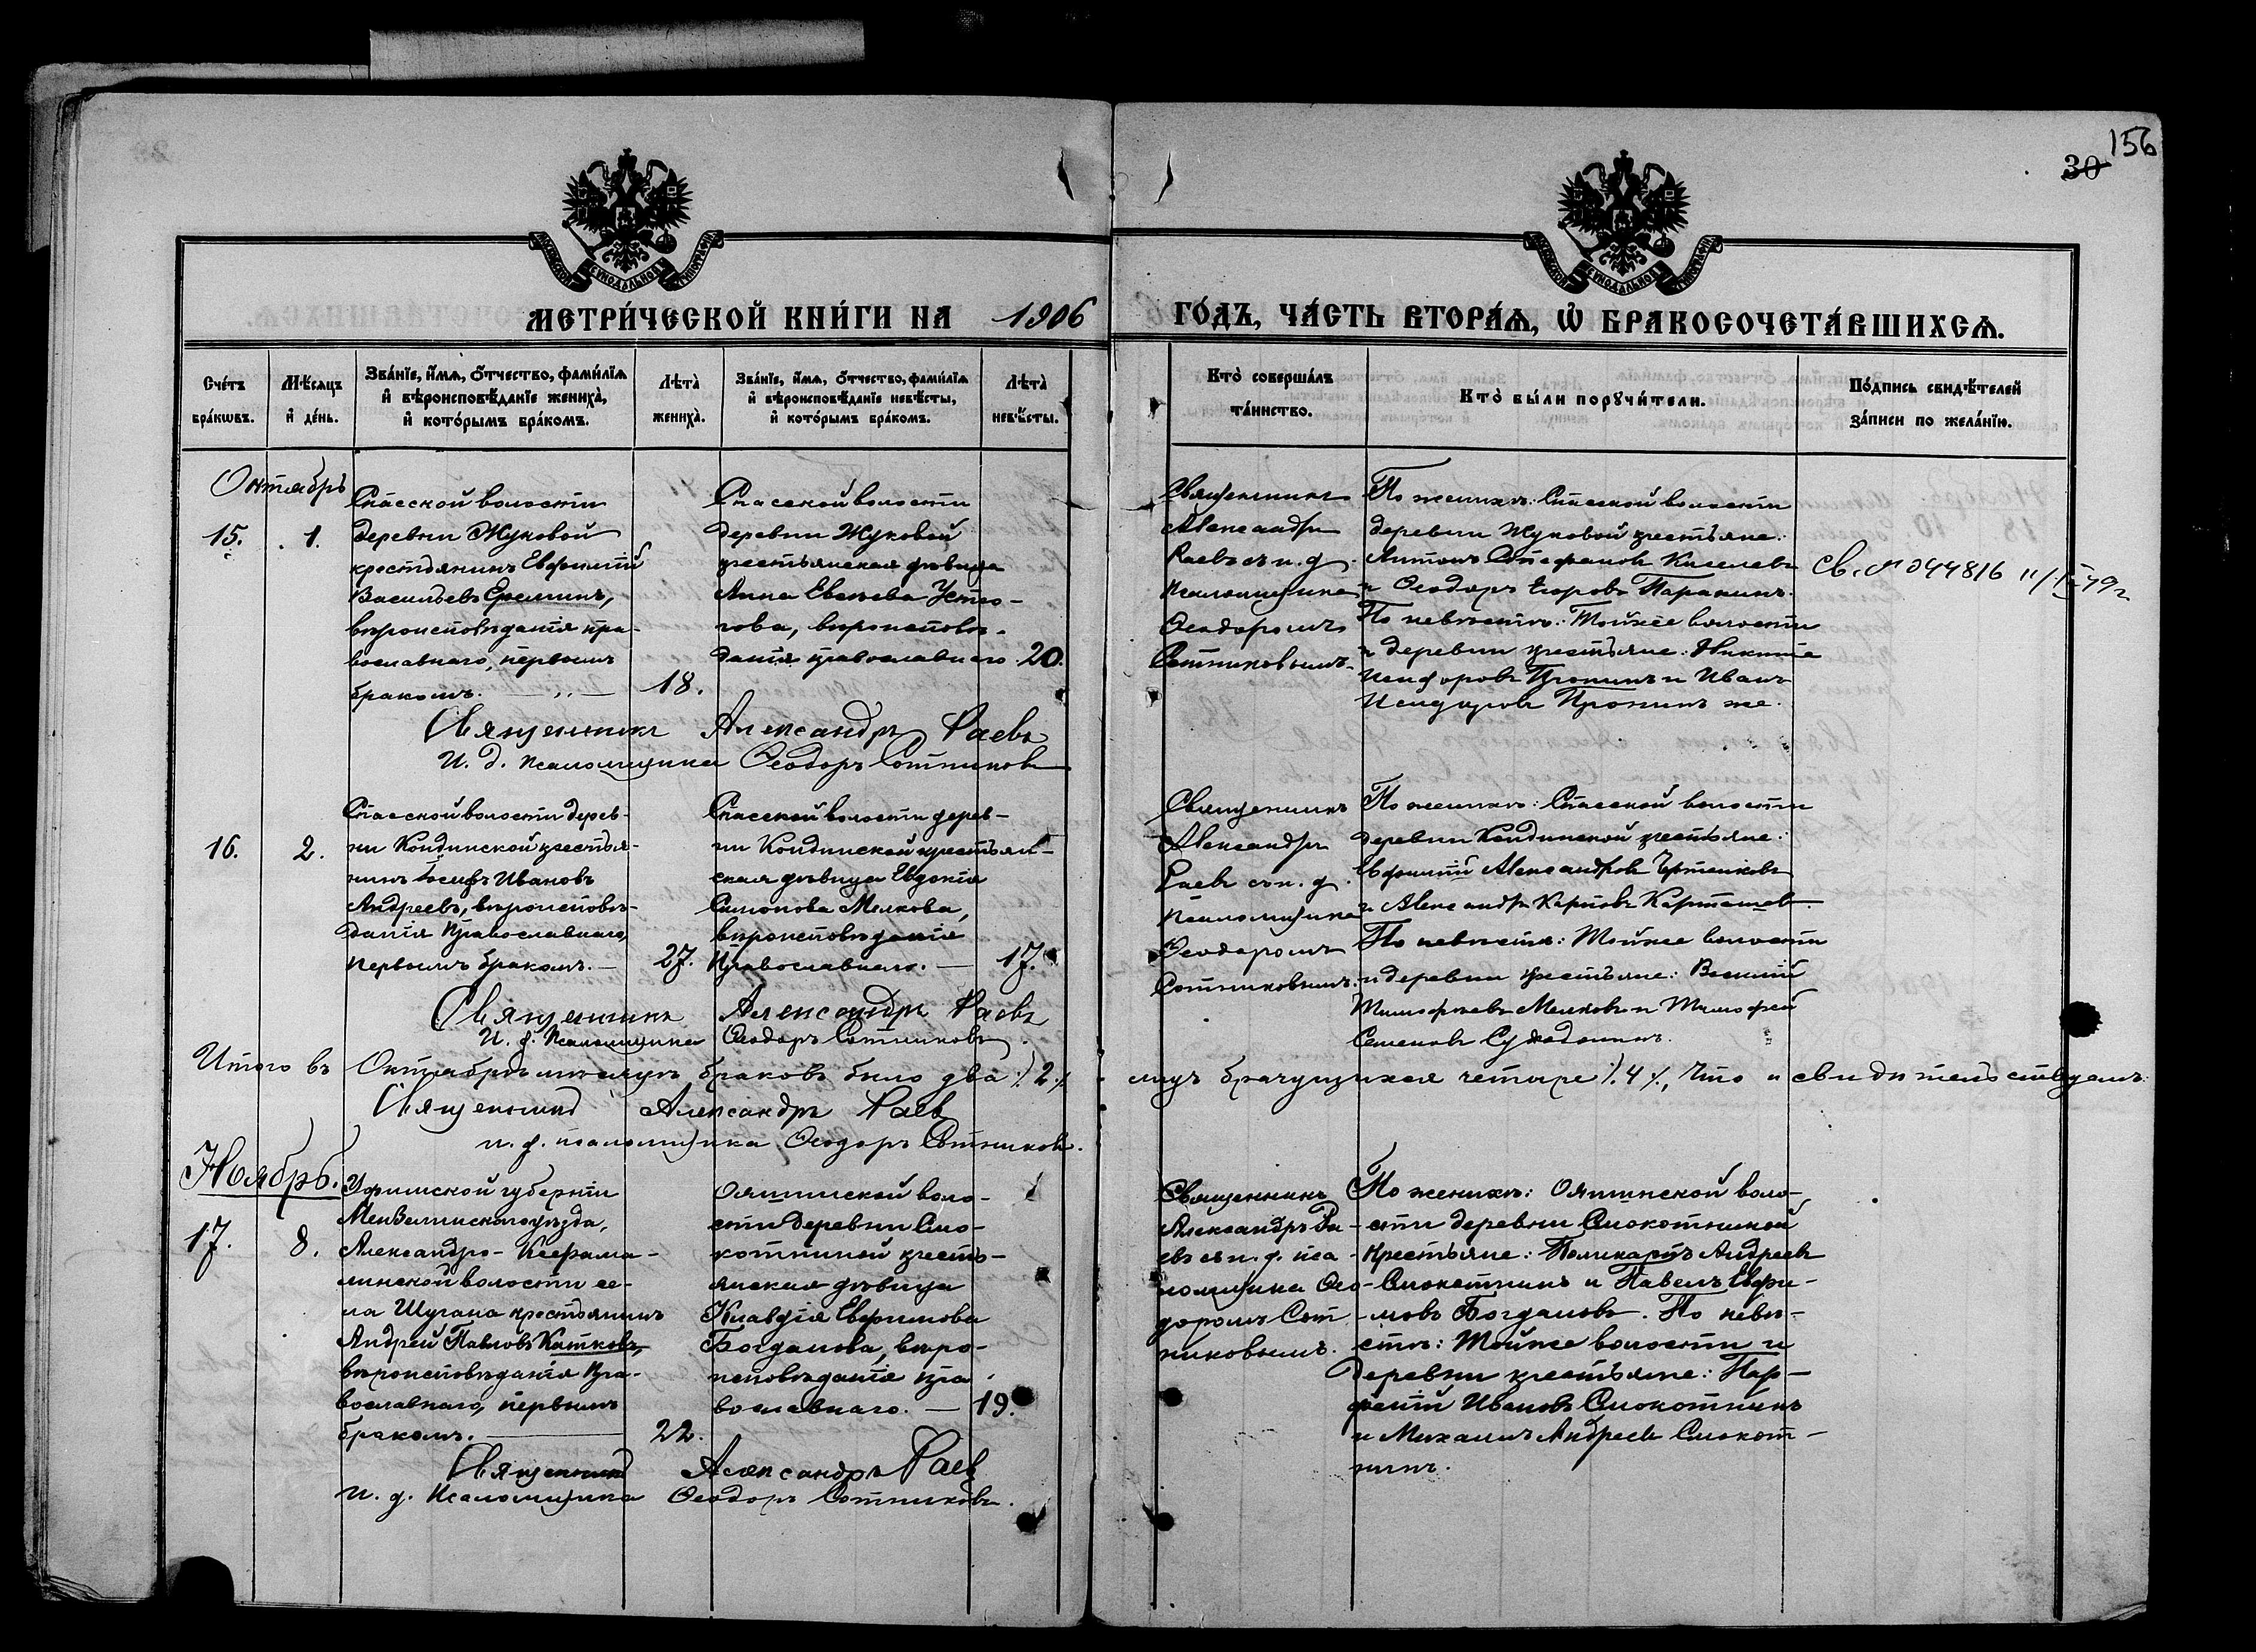 156
30
МОСКОВСКОЙ СѴНОДАЛЬНОЙ ТИПОГРАФІИ
МОСКОВСКОЙ СѴНОДАЛЬНОЙ ТИПОГРАФІИ
МЕТРИ́ЧЕСКОЙ КНИ́ГИ НА 1906 ГО́ДЪ, ЧА́СТЬ ВТОРА́Ѧ, Ѽ БРАКОСОЧЕТА́ВШИХСѦ.
Сче́тъ бра́кѡвъ.
Мѣ́сяцъ и де́нь.
Зва́нїе, и́мѧ, о́тчество, фами́лїѧ и вѣроисповѣ́данїе жениха̀, и кото́рымъ бра́комъ.
Лѣта̀ жениха̀.
Зва́нїе, и́мѧ, о́тчество, фами́лїѧ и вѣроисповѣ́данїе невѣ́сты, и кото́рымъ бра́комъ.
Лѣта̀ невѣ́сты.
Кто̀ соверша́лъ та́инство.
Кто̀ бы́ли порꙋчи́тели.
По́дпись свидѣ́телей за́писи по жела́нїю.
Октябрь
15.
1.
Спасской волости
деревни Жуковой
крестьянинъ Евфимій
Васильевъ Еремин,
вѣроисповѣданія пра-
вославнаго, первымъ
бракомъ. — „ —
18.
Спасской волости
деревни Жуковой
крестьянская дѣвица
Анна Евсѣева Устю-
гова, вѣроисповѣ-
данія православнаго
20.
Священникъ
Александръ
Раевъ съ и. д.
псаломщика
Ѳеодоромъ
Сотниковымъ.
По женихѣ: Спасской волости
деревни Жуковой крестьяне:
Антонъ Стефановъ Киселевъ
и Ѳеодоръ Егоровъ Паракинъ.
По невѣстѣ: Той же волости
и деревни крестьяне: Никита
Исидоровъ Пронинъ и Иванъ
Исидоровъ Пронинъ же.
Св. № 044816 11/IX 49 г
Священникъ Александръ Раевъ
И. д. псаломщика Ѳеодоръ Сотниковъ
16.
2.
Спасской волости дерев-
ни Кондинской крестья-
нинъ Іосифъ Ивановъ
Андреевъ, вѣроисповѣ-
данія Православнаго,
первымъ бракомъ. —
27.
Спасской волости дерев-
ни Кондинской крестьян-
ская дѣвица Евдокія
Симонова Мелкова,
вѣроисповѣданія
Православнаго. —
17.
Священникъ
Александръ
Раевъ съ и. д.
псаломщика
Ѳеодоромъ
Сотниковымъ.
По женихѣ: Спасской волости
деревни Кондинской крестьяне:
Евфимій Александровъ
и Александръ Карповъ Карташевъ.
По невѣстѣ: Той же волости
и деревни крестьяне: Василій
Тимофеевъ Мелковъ и Тимофей
Семеновъ
Священникъ Александръ Раевъ
И. д. Псаломщика Ѳеодоръ Сотниковъ
Итого въ Октябрѣ мѣсяцѣ браковъ было два /.2./.
лицъ брачущихся четыре /.4./., что и свидѣтельствуемъ:
Священникъ Александръ Раевъ
и. д. псаломщика Ѳеодоръ Сотниковъ.
Ноябрь.
17.
8.
Уфимской губерніи
Мензелинскаго уѣзда,
Александро-Карама-
линской волости се-
ла Шугана крестьянинъ
Андрей Павловъ Катковъ,
вѣроисповѣданія Пра-
вославнаго, первымъ
бракомъ. —
22.
Ояшинской воло-
сти деревни Смо-
котиной кресть-
янская дѣвица
Клавдія Евфимова
Богданова, вѣро-
исповѣданія пра-
вославнаго. —
19.
Священникъ
Александръ Ра-
евъ съ и. д. пса-
ломщика Ѳео-
доромъ Сот-
никовымъ.
По женихѣ: Ояшинской воло-
сти деревни Смокотиной
Крестьяне: Поликарпъ Андреевъ
Смокотинъ и Павелъ Евфи-
мовъ Богдановъ. По невѣ-
стѣ: Той же волости и
деревни крестьяне: Пар-
феній Ивановъ Смокотнинъ
и Михаилъ Андреевъ Смокот-
нинъ.
Священникъ Александръ Раевъ
и. д. Псаломщика Ѳеодоръ Сотниковъ.